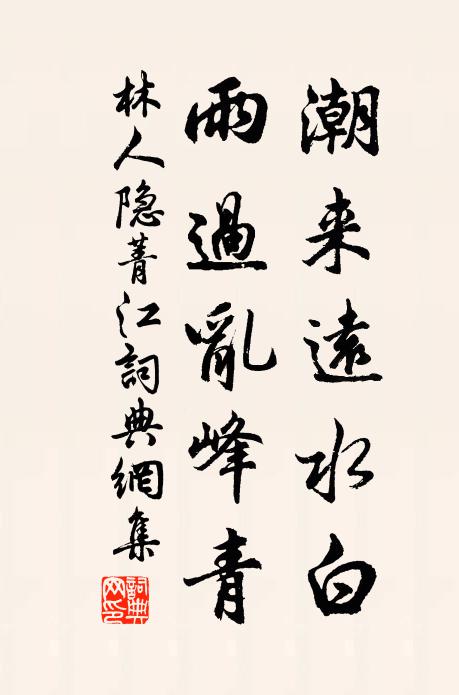 潮来遠水白
雨過亂峰青
林人隐菁江詞典網集
詞典网印